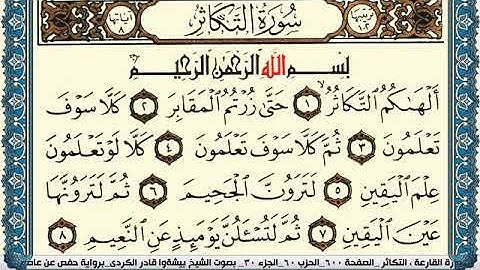 سُورَةُ التَّكَاثُرِ آياتها ٨
بِسْمِ اللَّهِ الرَّحْمَٰنِ الرَّحِيمِ
أَلْهَاكُمُ التَّكَاثُرُ ١ حَتَّىٰ زُرْتُمُ الْمَقَابِرَ ٢ كَلَّا سَوْفَ
تَعْلَمُونَ ٣ ثُمَّ كَلَّا سَوْفَ تَعْلَمُونَ ٤ كَلَّا لَوْ تَعْلَمُونَ
عِلْمَ الْيَقِينِ ٥ لَتَرَوُنَّ الْجَحِيمَ ٦ ثُمَّ لَتَرَوُنَّهَا
عَيْنَ الْيَقِينِ ٧ ثُمَّ لَتُسْأَلُنَّ يَوْمَئِذٍ عَنِ النَّعِيمِ ٨
رة القارعة ، التكاثر_الصفحة ٦٠٠_الحزب ٦٠_الجزء ٣٠_ بصوت الشيخ بيشةوا قادر الكردى_برواية حفص عن عاصم